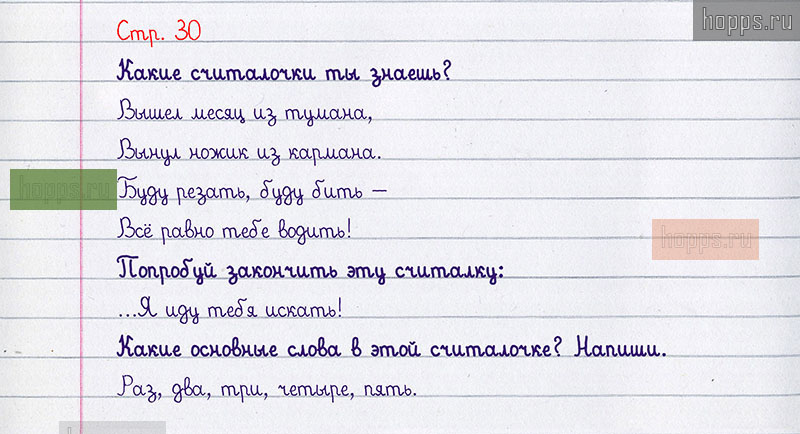 hopps.ru
Стр. 30
Какие считалочки ты знаешь?
Вышел месяц из тумана,
Вынул ножик из кармана.
hopps.ru
Буду резать, буду бить –
Всё равно тебе водить!
hopps.ru
Попробуй закончить эту считалку:
...Я иду тебя искать!
Какие основные слова в этой считалочке? Напиши.
Раз, два, три, четыре, пять.